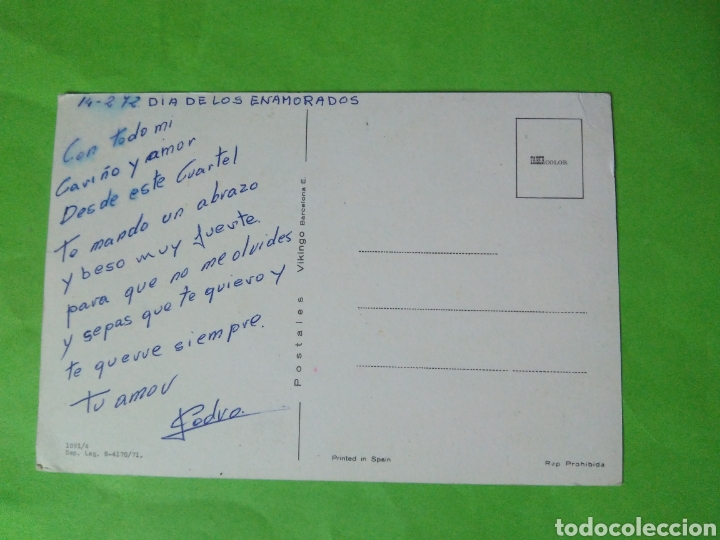 14-2 72 DIA DE LOS ENAMORADOS
Con todo mi
Cariño y amor
Desde este Cuartel
Te mando un abrazo
y beso muy fuerte.
para que no me olvides
y sepas que te quiero y
te querre siempre.
Tu amor
Pedro.
1091/4
Dep. Leg. B-4178/71.
Postales Vikingo Barcelona E.
COLOR
Printed in Spain
Rep Prohibida
todocoleccion